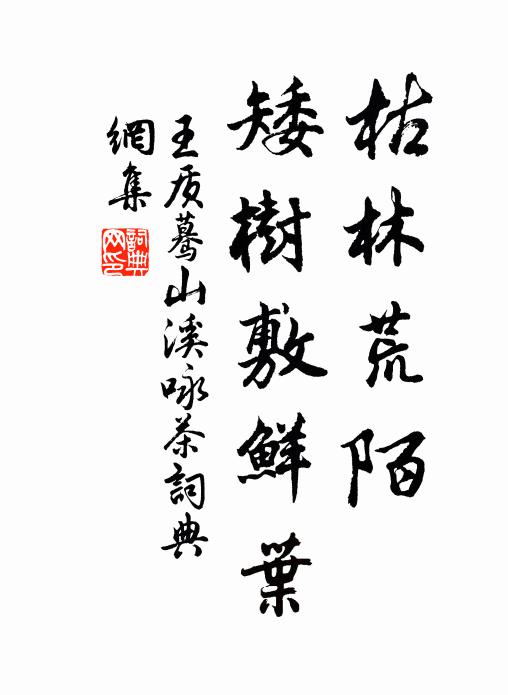 枯林荒陌
矮樹敷鮮葉
王质驀山溪咏茶詞典
網集
詞典網印